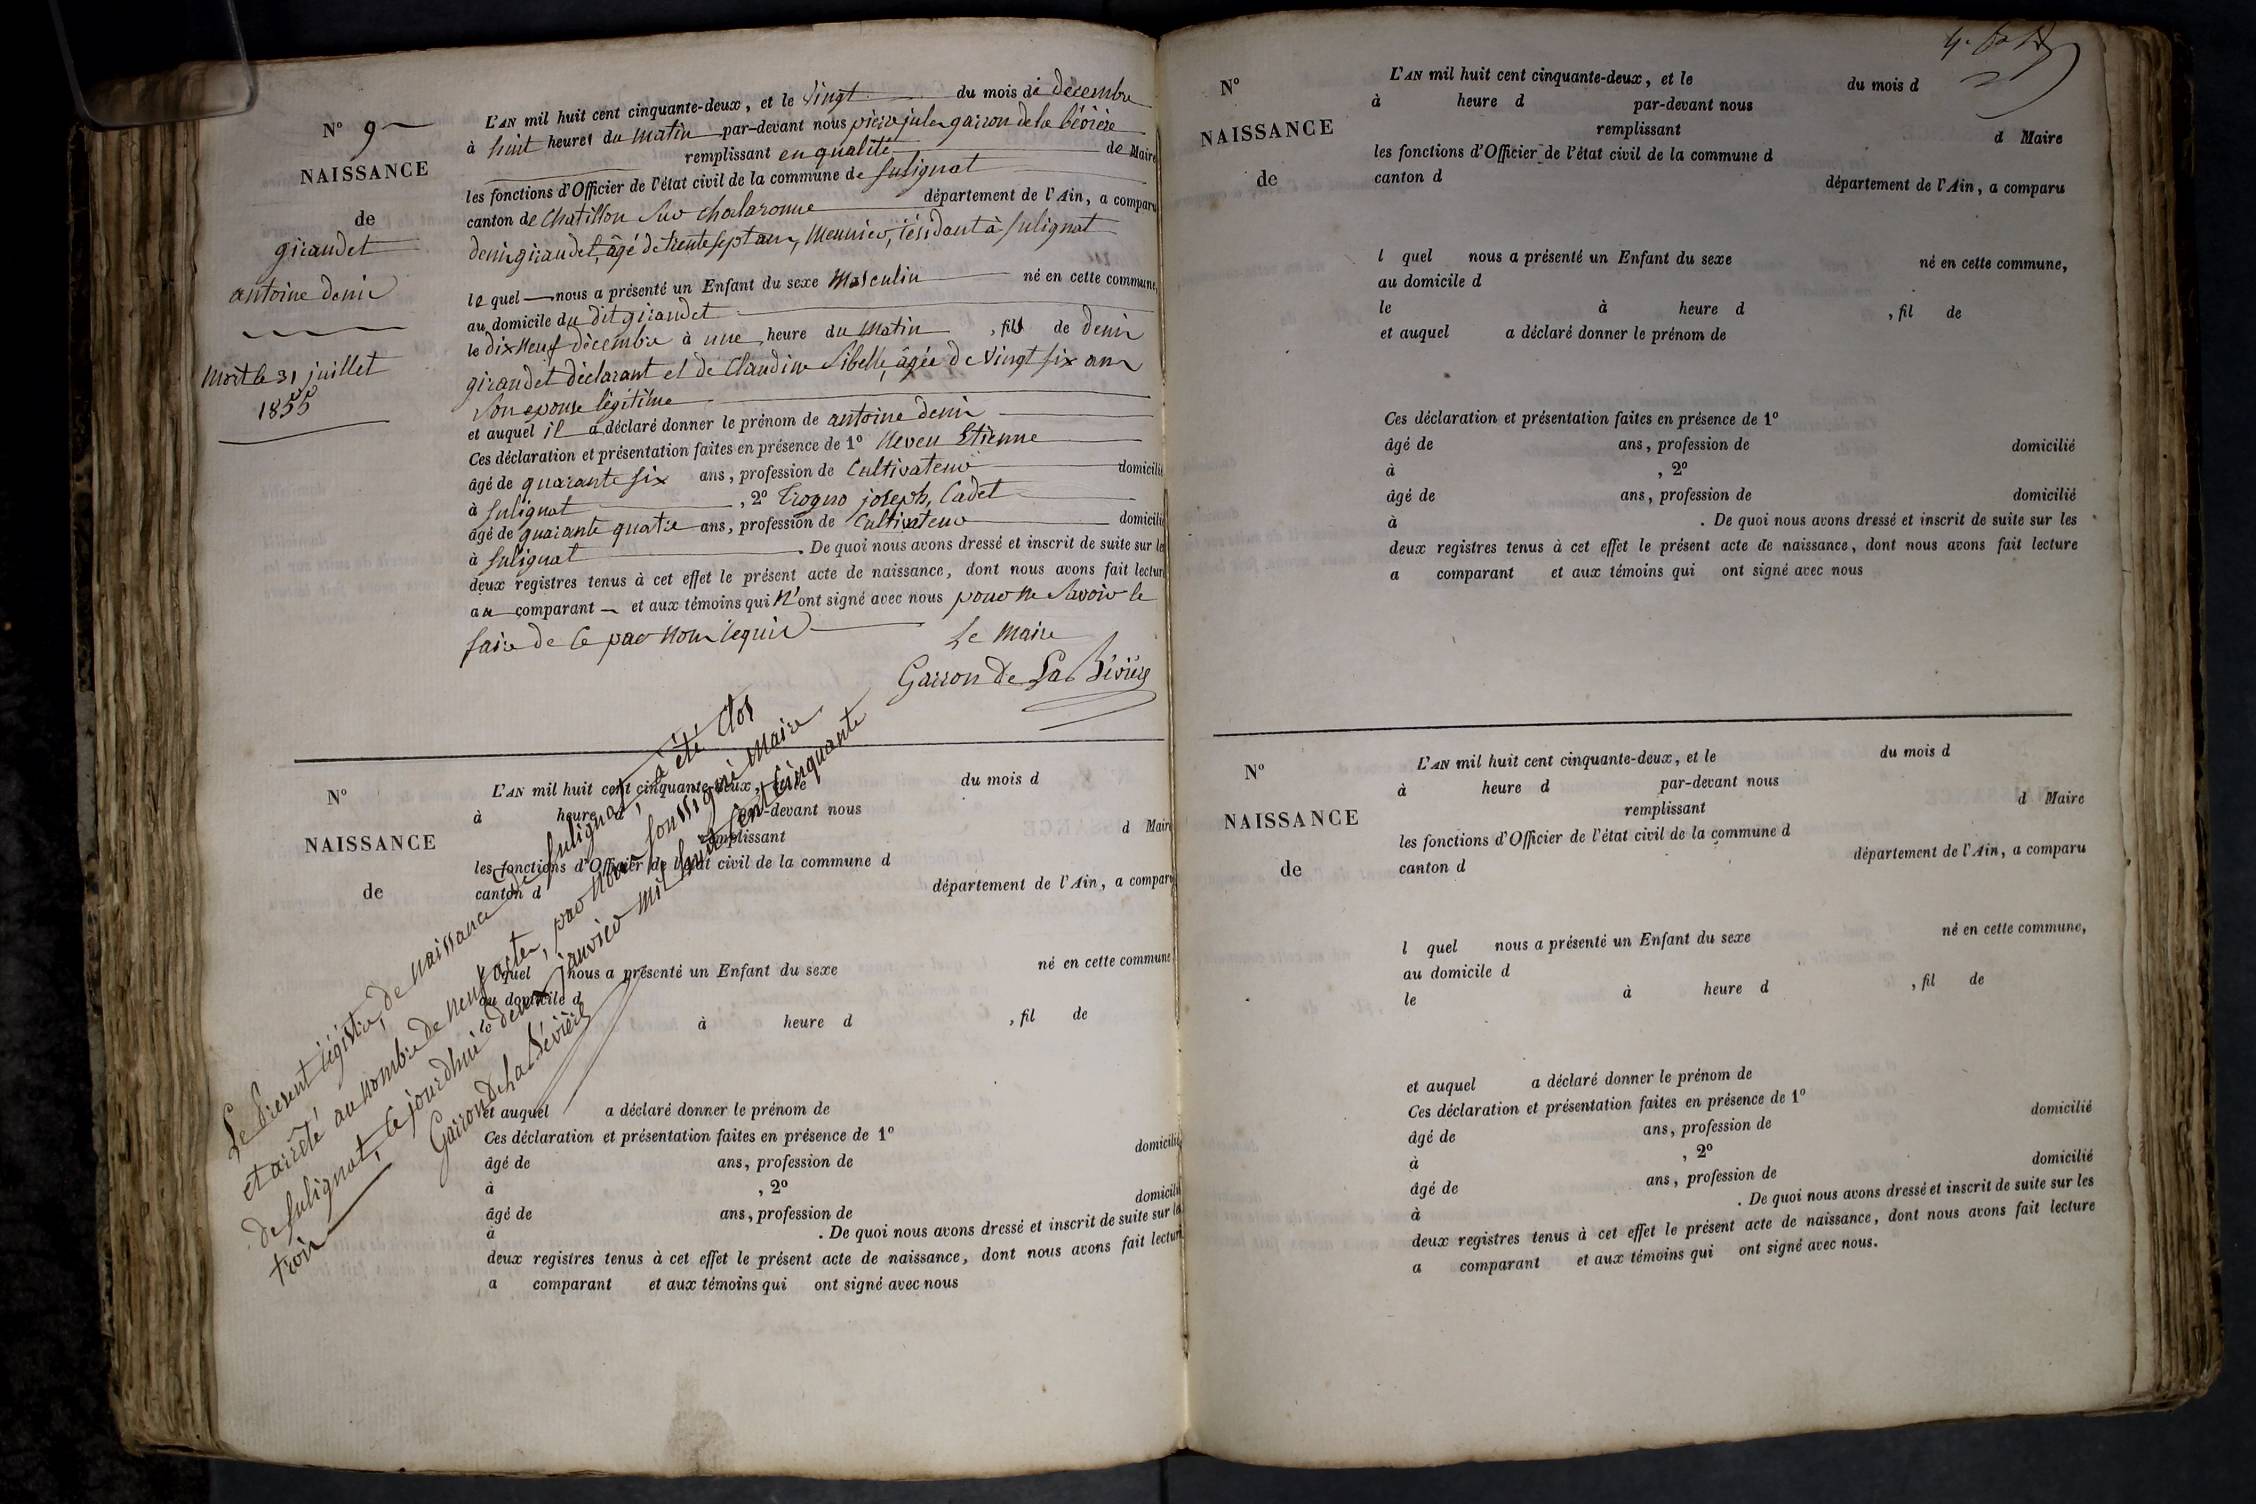 N° 9
NAISSANCE
de
giraudet
antoine denis
Mort le 31 juillet
1855
L'AN mil huit cent cinquante-deux, et le vingt du mois de decembre
à huit heures du matin par-devant nous pierre jules garron de la bévière
remplissant en qualité de Maire
les fonctions d'Officier de l'état civil de la commune de Sulignat
canton de Chatillon Sur chalaronne département de l'Ain, a comparu
denis giraudet, âgé de trente sept ans, Meunier, résidant à Sulignat
le quel nous a présenté un Enfant du sexe Masculin né en cette commune,
au domicile du dit giraudet
le dix Neuf décembre à une heure du Matin, fils de denis
giraudet déclarant et de Claudine Sibelle, âgée de Vingt six ans
Son epouse légitime
et auquel il a déclaré donner le prénom de antoine denis
Ces déclaration et présentation faites en présence de 1° Neveu Etienne
âgé de quarante six ans, profession de Cultivateur domicilié
à Sulignat, 2° joseph, Cadet
âgé de quarante quatre ans, profession de Cultivateur domicilié
à Sulignat. De quoi nous avons dressé et inscrit de suite sur les
deux registres tenus à cet effet le présent acte de naissance, dont nous avons fait lecture
au comparant et aux témoins qui N'ont signé avec nous pour ne Savoir le
faire de ce par nous requis
Le Maire
Garron de La Bévière
N°
NAISSANCE
de
L'AN mil huit cent cinquante-deux, et le du mois d
à heure d par-devant nous
remplissant d Maire
les fonctions d'Officier de l'état civil de la commune d
canton d département de l'Ain, a comparu
l quel nous a présenté un Enfant du sexe né en cette commune
au domicile d
le à heure d , fil de
et auquel a déclaré donner le prénom de
Ces déclaration et présentation faites en présence de 1°
âgé de ans, profession de domicilié
à , 2°
âgé de ans, profession de domicilié
à . De quoi nous avons dressé et inscrit de suite sur les
deux registres tenus à cet effet le présent acte de naissance, dont nous avons fait lecture
a comparant et aux témoins qui ont signé avec nous
Le Présent régistre, de naissance de Sulignat, a été clos
et arrêté au nombre de neuf actes, par nous soussigné Maire
de Sulignat, ce jourdhui le deux janvier mil huit cent cinquante
trois
Garron De La Bévière
N°
NAISSANCE
de
L'AN mil huit cent cinquante-deux, et le du mois d
à heure d par-devant nous
remplissant d Maire
les fonctions d'Officier de l'état civil de la commune d
canton d département de l'Ain, a comparu
l quel nous a présenté un Enfant du sexe né en cette commune,
au domicile d
le à heure d , fil de
et auquel a déclaré donner le prénom de
Ces déclaration et présentation faites en présence de 1°
âgé de ans, profession de domicilié
à , 2°
âgé de ans, profession de domicilié
à . De quoi nous avons dressé et inscrit de suite sur les
deux registres tenus à cet effet le présent acte de naissance, dont nous avons fait lecture
a comparant et aux témoins qui ont signé avec nous
N°
NAISSANCE
de
L'AN mil huit cent cinquante-deux, et le du mois d
à heure d par-devant nous
remplissant d Maire
les fonctions d'Officier de l'état civil de la commune d
canton d département de l'Ain, a comparu
l quel nous a présenté un Enfant du sexe né en cette commune,
au domicile d
le à heure d , fil de
et auquel a déclaré donner le prénom de
Ces déclaration et présentation faites en présence de 1°
âgé de ans, profession de domicilié
à , 2°
âgé de ans, profession de domicilié
à . De quoi nous avons dressé et inscrit de suite sur les
deux registres tenus à cet effet le présent acte de naissance, dont nous avons fait lecture
a comparant et aux témoins qui ont signé avec nous.